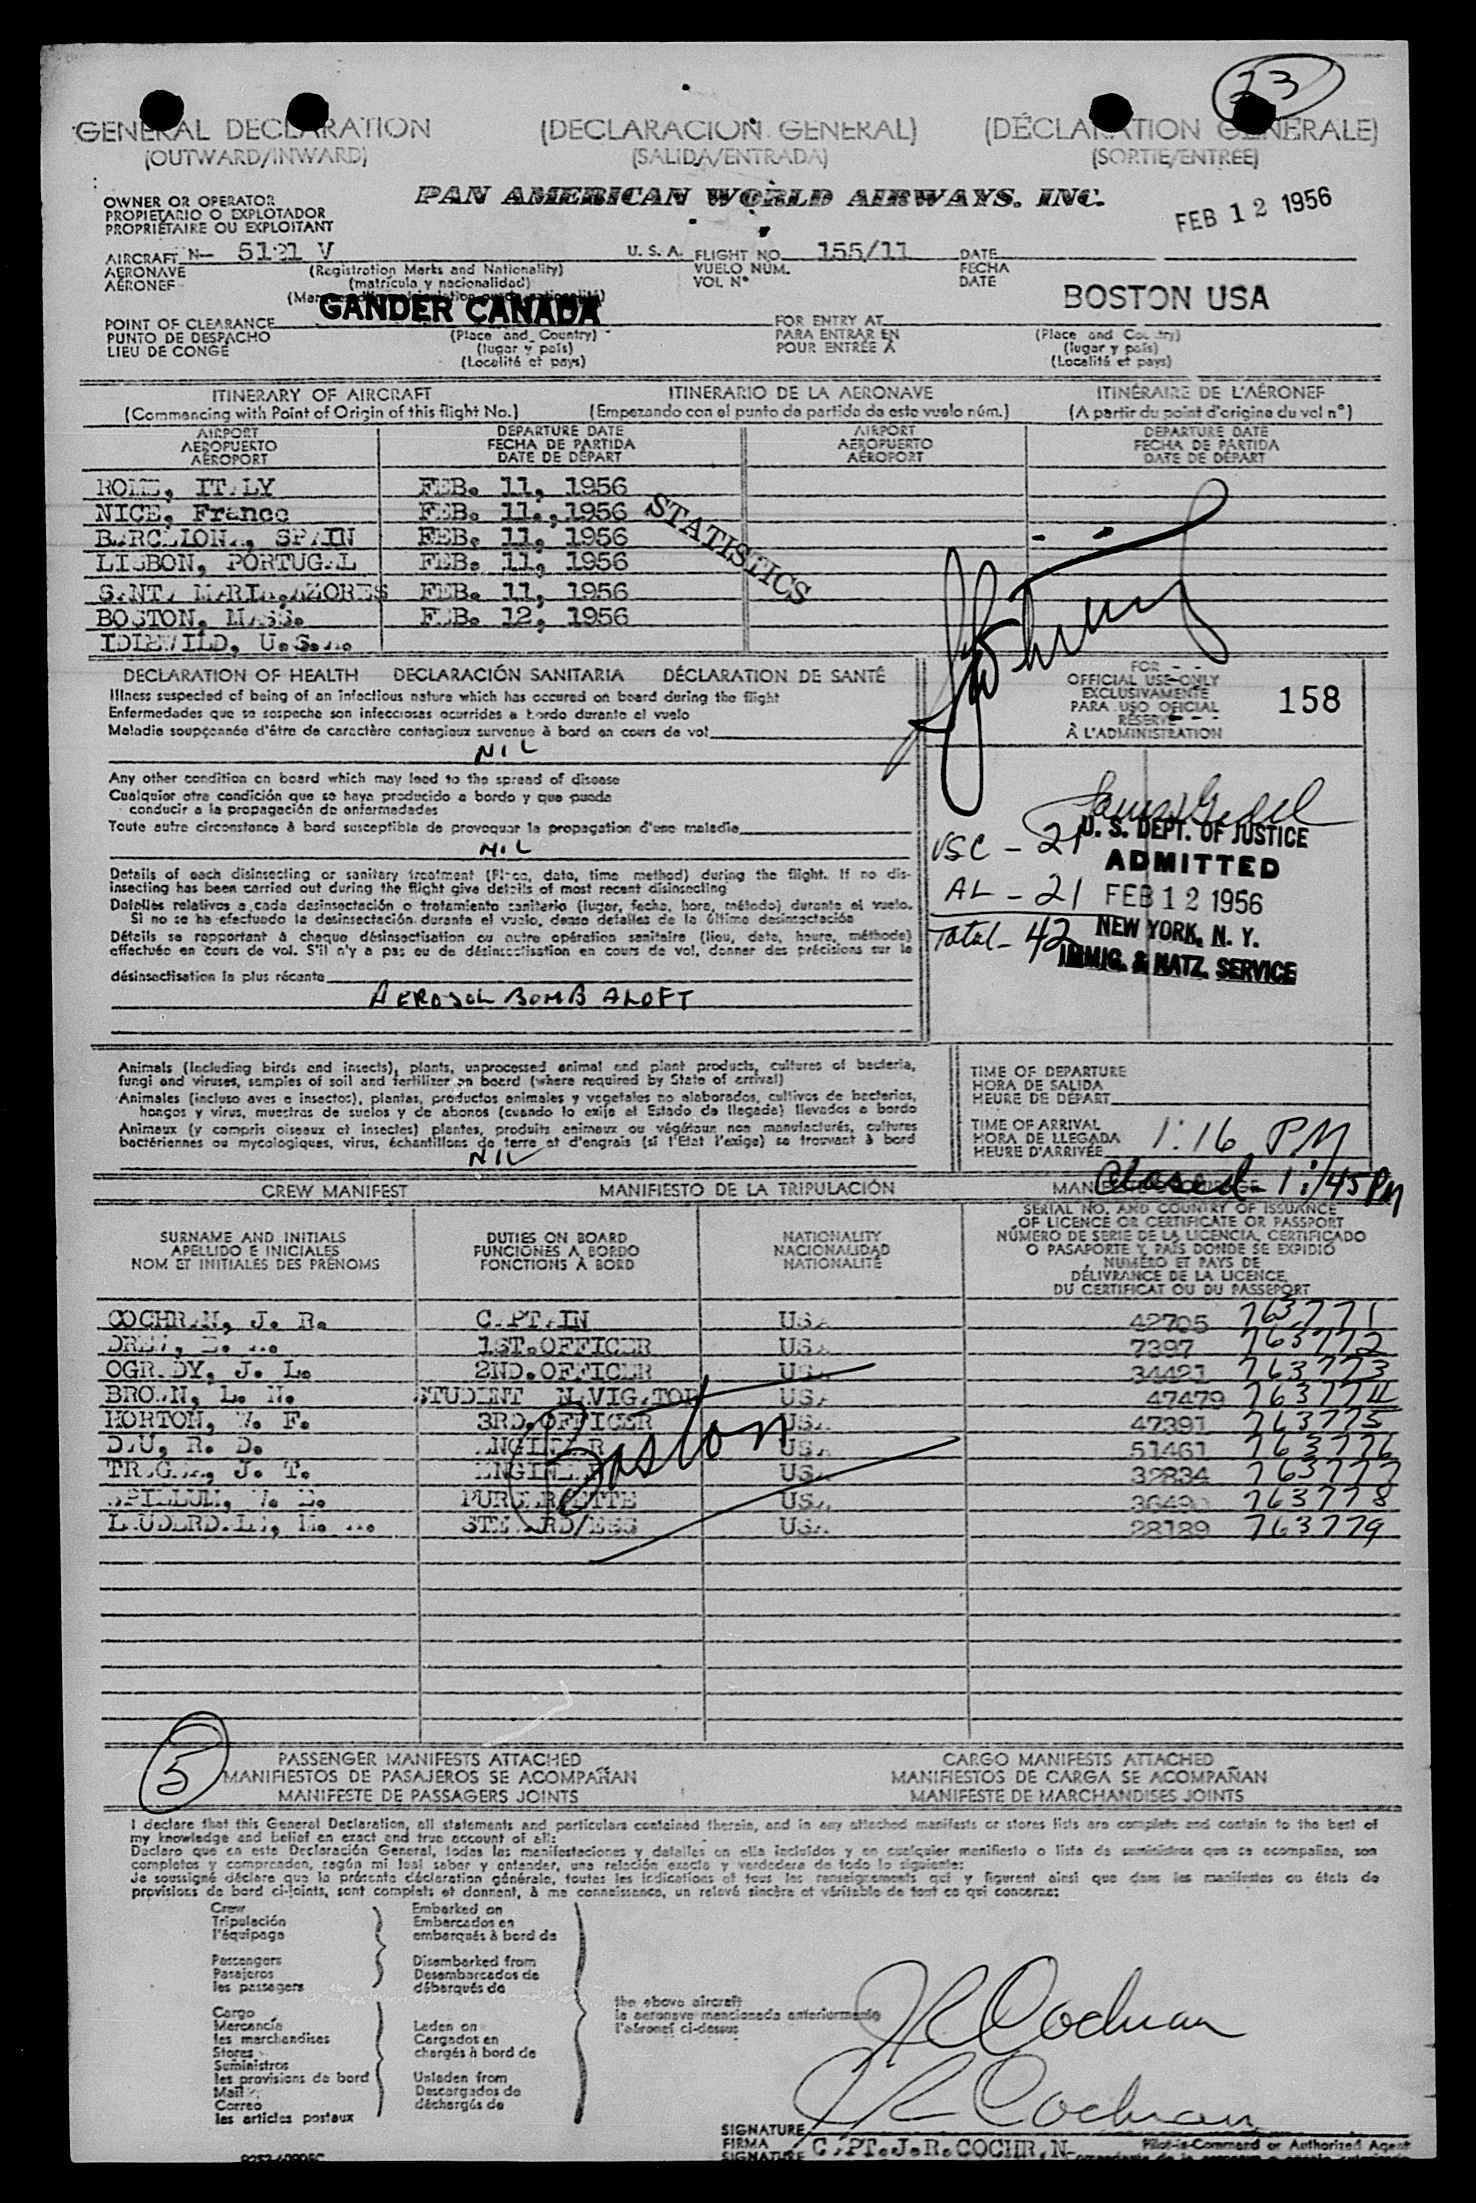 23
GENERAL DECLARATION (DECLARACION GENERAL) (DÉCLARATION GÉNÉRALE)
(OUTWARD/INWARD) (SALIDA/ENTRADA) (SORTIE/ENTREE)
OWNER OR OPERATOR
PROPIETARIO O EXPLOTADOR
PROPRIÉTAIRE OU EXPLOITANT
PAN AMERICAN WORLD AIRWAYS, INC.
FEB 12 1956
AIRCRAFT N- 5121 V U. S. A. FLIGHT NO. 155/11 DATE
AERONAVE (Registration Marks and Nationality) VUELO NUM. FECHA
AÉRONEF (matrícula y nacionalidad) VOL N° DATE
GANDER CANADA BOSTON USA
POINT OF CLEARANCE (Place and Country) FOR ENTRY AT (Place and Country)
PUNTO DE DESPACHO (lugar y país) PARA ENTRAR EN (lugar y país)
LIEU DE CONGÉ (Localité et pays) POUR ENTRÉE À (Localité et pays)
ITINERARY OF AIRCRAFT ITINERARIO DE LA AERONAVE ITINÉRAIRE DE L'AÉRONEF
(Commencing with Point of Origin of this flight No.) (Empezando con el punto de partida de este vuelo núm.) (A partir du point d'origine du vol n°)
AIRPORT DEPARTURE DATE AIRPORT DEPARTURE DATE
AEROPUERTO FECHA DE PARTIDA AEROPUERTO FECHA DE PARTIDA
AÉROPORT DATE DE DÉPART AÉROPORT DATE DE DÉPART
ROME, ITALY FEB. 11, 1956
NICE, France FEB. 11., 1956
BARCELONA, SPAIN FEB. 11, 1956
LISBON, PORTUGAL FEB. 11, 1956
SANTA MARIA, AZORES FEB. 11, 1956
BOSTON, MASS. FEB. 12, 1956
IDLEWILD, U.S.A.
STATISTICS
DECLARATION OF HEALTH DECLARACIÓN SANITARIA DÉCLARATION DE SANTÉ
Illness suspected of being of an infectious nature which has occured on board during the flight
Enfermedades que se sospecha son infecciosas ocurridas a bordo durante el vuelo
Maladie soupçonnée d'être de caractère contagieux survenue à bord en cours de vol
NIL
Any other condition on board which may lead to the spread of disease
Cualquier otra condición que se haya producido a bordo y que pueda
conducir a la propagación de enfermedades
Toute autre circonstance à bord susceptible de provoquer la propagation d'une maladie
NIL
Details of each disinsecting or sanitary treatment (Place, date, time method) during the flight. If no dis-
insecting has been carried out during the flight give details of most recent disinsecting
Detalles relativos a cada desinsectación o tratamiento sanitario (lugar, fecha, hora, método) durante el vuelo.
Si no se ha efectuado la desinsectación durante el vuelo, dense detalles de la última desinsectación
Détails se rapportant à chaque désinsectisation ou autre opération sanitaire (lieu, date, heure, méthode)
effectuée en cours de vol. S'il n'y a pas eu de désinsectisation en cours de vol, donner des précisions sur la
désinsectisation la plus récente
AEROSOL BOMB ALOFT
FOR
OFFICIAL USE ONLY
EXCLUSIVAMENTE
PARA USO OFICIAL
RÉSERVÉ
À L'ADMINISTRATION
158
USC - 21
AL - 21
Total - 42
U. S. DEPT. OF JUSTICE
ADMITTED
FEB 12 1956
NEW YORK, N. Y.
IMMIG. & NATZ. SERVICE
Animals (Including birds and insects), plants, unprocessed animal and plant products, cultures of bacteria,
fungi and viruses, samples of soil and fertilizer on board (where required by State of arrival)
Animales (incluso aves e insectos), plantas, productos animales y vegetales no elaborados, cultivos de bacterias,
hongos y virus, muestras de suelos y de abonos (cuando lo exija el Estado de llegada) llevados a bordo
Animaux (y compris oiseaux et insectes) plantes, produits animaux ou végétaux non manufacturés, cultures
bactériennes ou mycologiques, virus, échantillons de terre et d'engrais (si l'Etat l'exige) se trouvant à bord
NIL
TIME OF DEPARTURE
HORA DE SALIDA
HEURE DE DÉPART
TIME OF ARRIVAL
HORA DE LLEGADA
HEURE D'ARRIVÉE
1:16 PM
Closed - 1:45 PM
CREW MANIFEST MANIFIESTO DE LA TRIPULACIÓN
SURNAME AND INITIALS DUTIES ON BOARD NATIONALITY SERIAL NO. AND COUNTRY OF ISSUANCE
APELLIDO E INICIALES FUNCIONES A BORDO NACIONALIDAD OF LICENCE OR CERTIFICATE OR PASSPORT
NOM ET INITIALES DES PRÉNOMS FONCTIONS À BORD NATIONALITÉ NÚMERO DE SERIE DE LA LICENCIA, CERTIFICADO
O PASAPORTE Y PAÍS DONDE SE EXPIDIÓ
NUMÉRO ET PAYS DE
DÉLIVRANCE DE LA LICENCE,
DU CERTIFICAT OU DU PASSEPORT
COCHRAN, J. R. CAPTAIN USA 42705 763771
1ST.OFFICER USA 7397 763772
OGRADY, J. L. 2ND.OFFICER USA 34421 763773
BROWN, L. N. STUDENT NAVIGATOR USA 47479 763774
HORTON, W. F. 3RD.OFFICER USA 47391 763775
R. D. ENGINEER USA 51461 763776
J. T. ENGINEER USA 32834 763777
PURSERETTE USA 763778
STEWARD/ESS USA 28189 763779
Boston
5
PASSENGER MANIFESTS ATTACHED CARGO MANIFESTS ATTACHED
MANIFIESTOS DE PASAJEROS SE ACOMPAÑAN MANIFIESTOS DE CARGA SE ACOMPAÑAN
MANIFESTE DE PASSAGERS JOINTS MANIFESTE DE MARCHANDISES JOINTS
I declare that this General Declaration, all statements and particulars contained therein, and in any attached manifests or stores lists are complete and contain to the best of
my knowledge and belief an exact and true account of all:
Declaro que en esta Declaración General, todas las manifestaciones y detalles en ella incluidos y en cualquier manifiesto o lista de suministros que se acompañan, son
completos y comprenden, según mi leal saber y entender, una relación exacta y verdadera de todo lo siguiente:
Je soussigné déclare que la présente déclaration générale, toutes les indications et tous les renseignements qui y figurent ainsi que dans les manifestes ou états de
provisions de bord ci-joints, sont complets et donnent, à ma connaissance, un relevé sincère et véritable de tout ce qui concerne:
Crew Embarked on
Tripulación Embarcados en
l'équipage embarqués à bord de
Passengers Disembarked from
Pasajeros Desembarcados de
les passagers débarqués de
the above aircraft
la aeronave mencionada anteriormente
l'aéronef ci-dessus
Cargo
Mercancía Laden on
les marchandises Cargados en
Stores chargés à bord de
Suministros
les provisions de bord Unladen from
Mail Descargados de
Correo déchargés de
les articles postaux
JR Cochran
JR Cochran
SIGNATURE
FIRMA
SIGNATURE
CAPT.J.R.COCHRAN
Pilot-in-Command or Authorized Agent